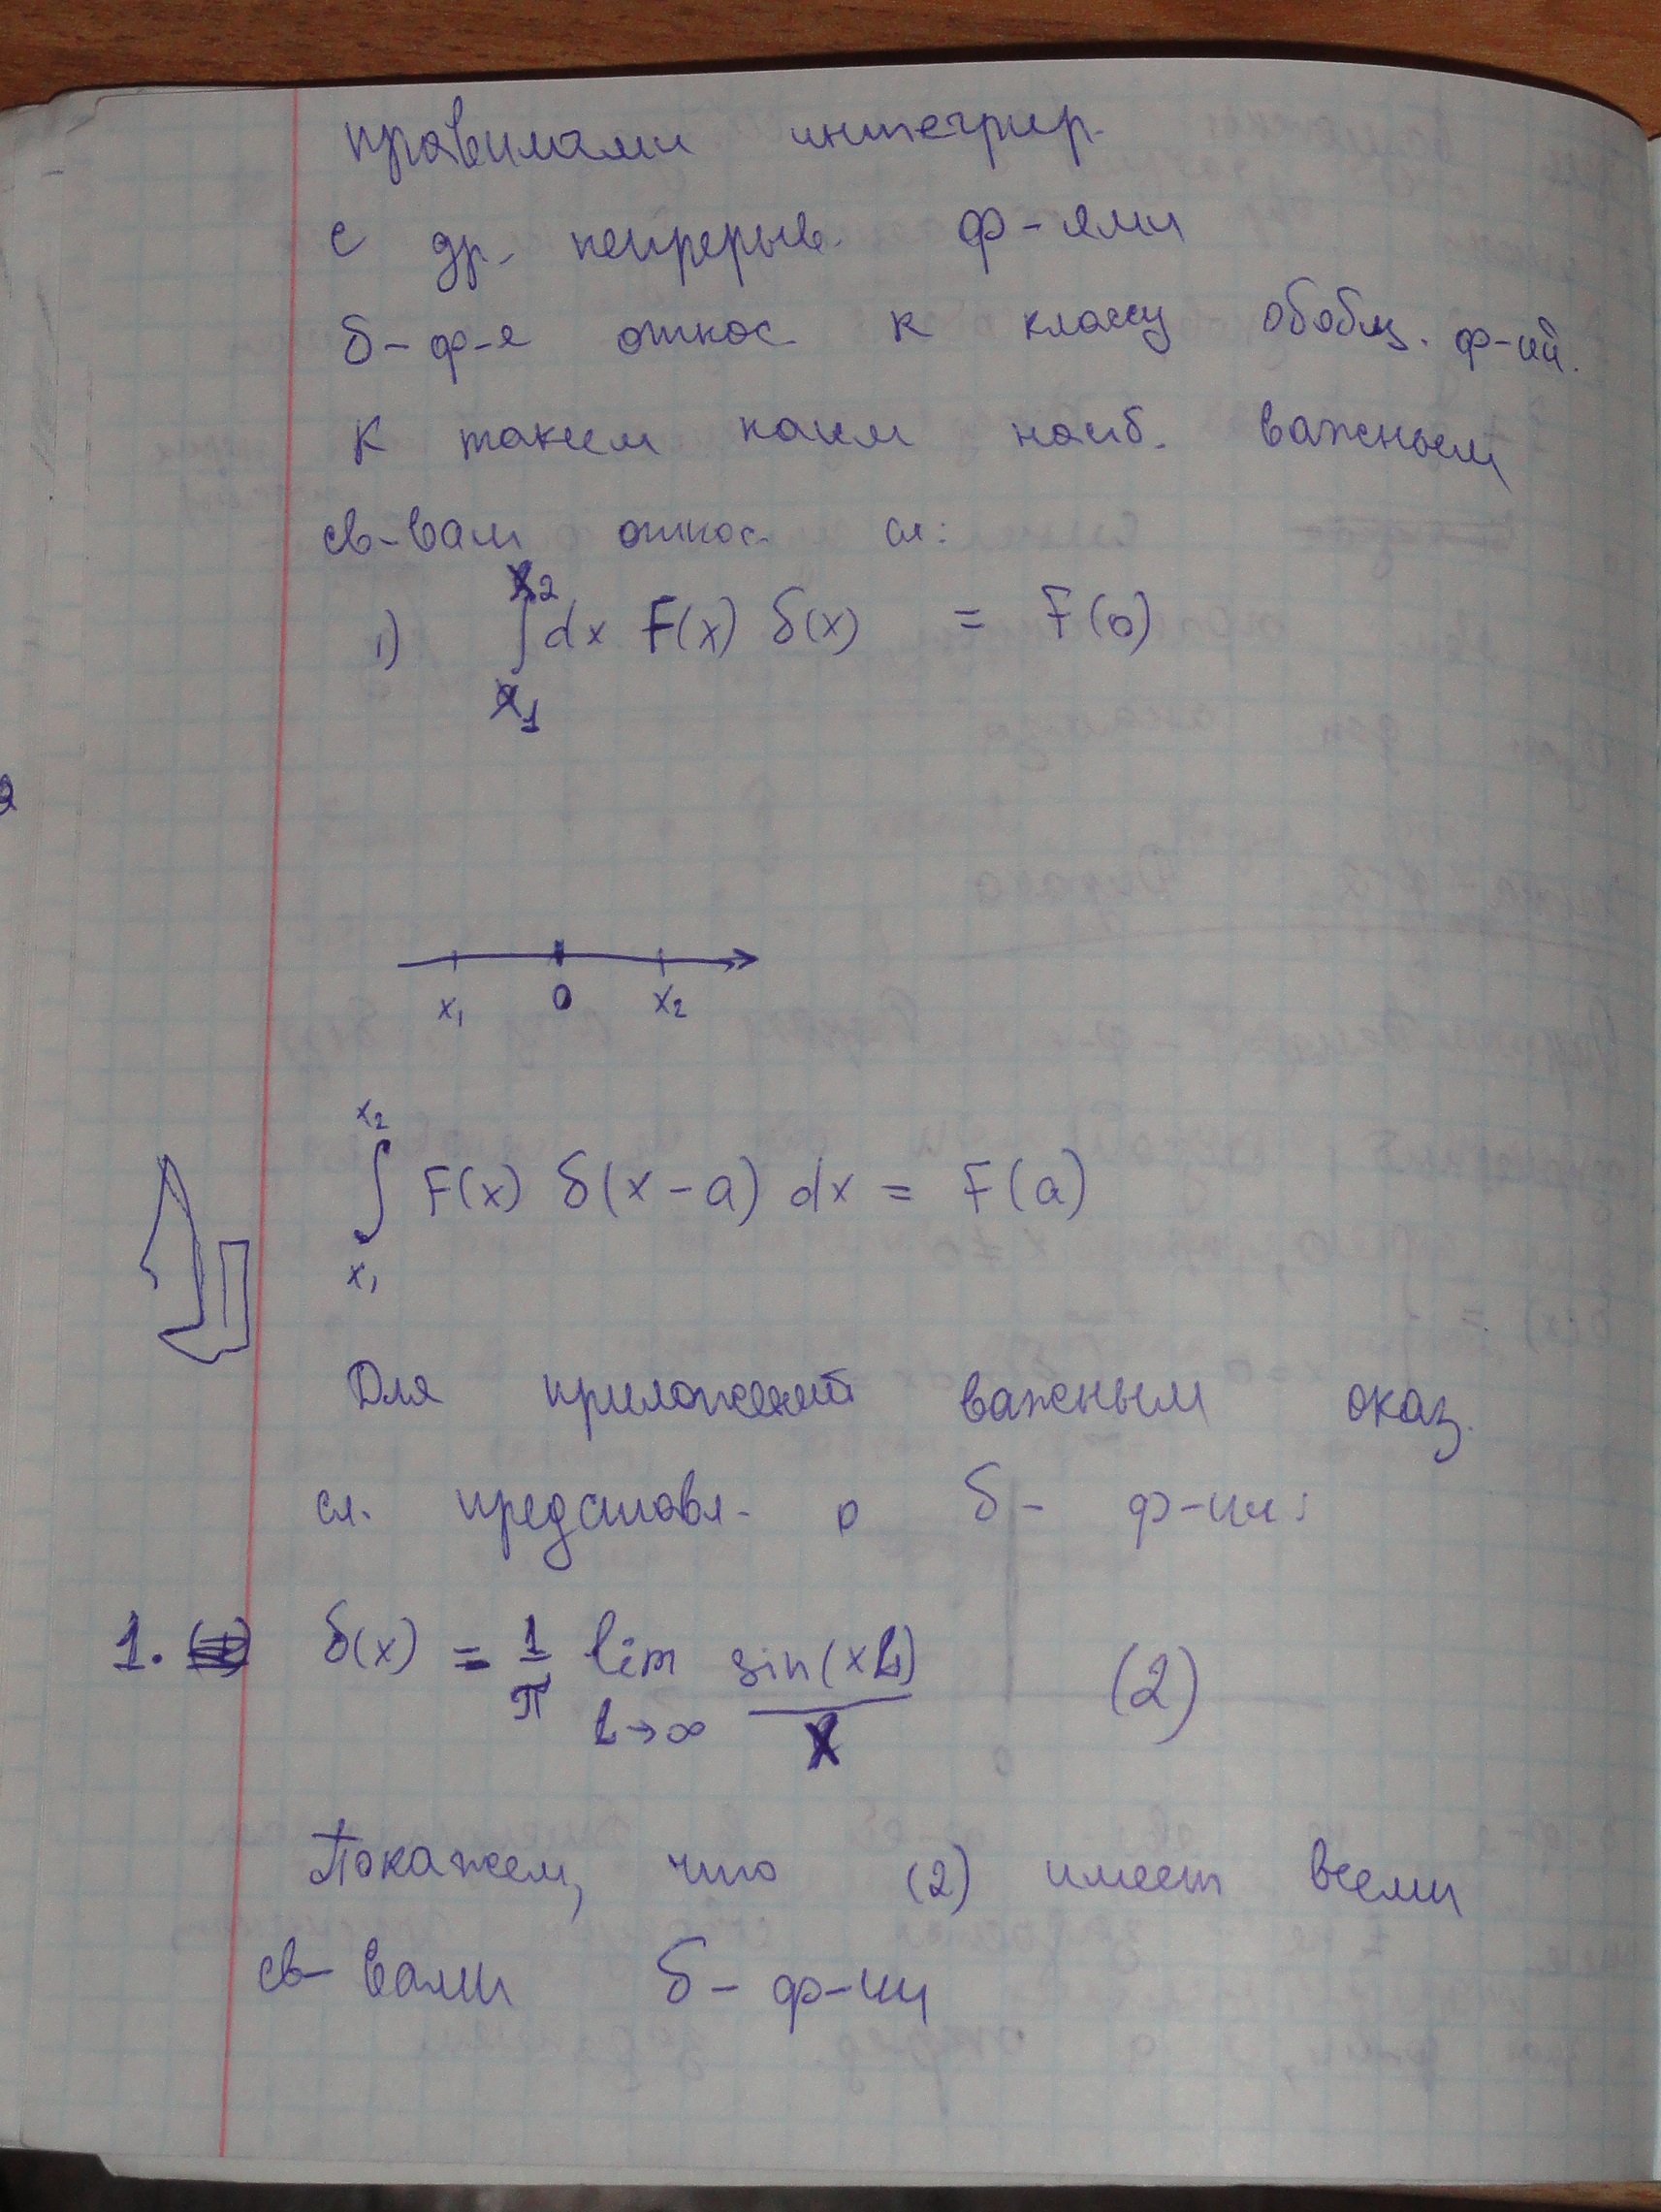 правилами интегрир.
с др. непрерыв. ф-ями
δ-ф-я относ. к классу обобщ. ф-ий.
К таким наим наиб. важным
св-вам относ. сл:
1) ∫_{x1}^{x2} dx F(x) δ(x) = F(0)
x₁ 0 x₂
∫_{x₁}^{x₂} F(x) δ(x-a) dx = F(a)
Для приложений важным оказ.
сл. представл. о δ- ф-ии:
1. δ(x) = 1/π lim_{L→∞} sin(xL)/x (2)
Покажем, что (2) имеет всеми
св-вами δ-ф-ии